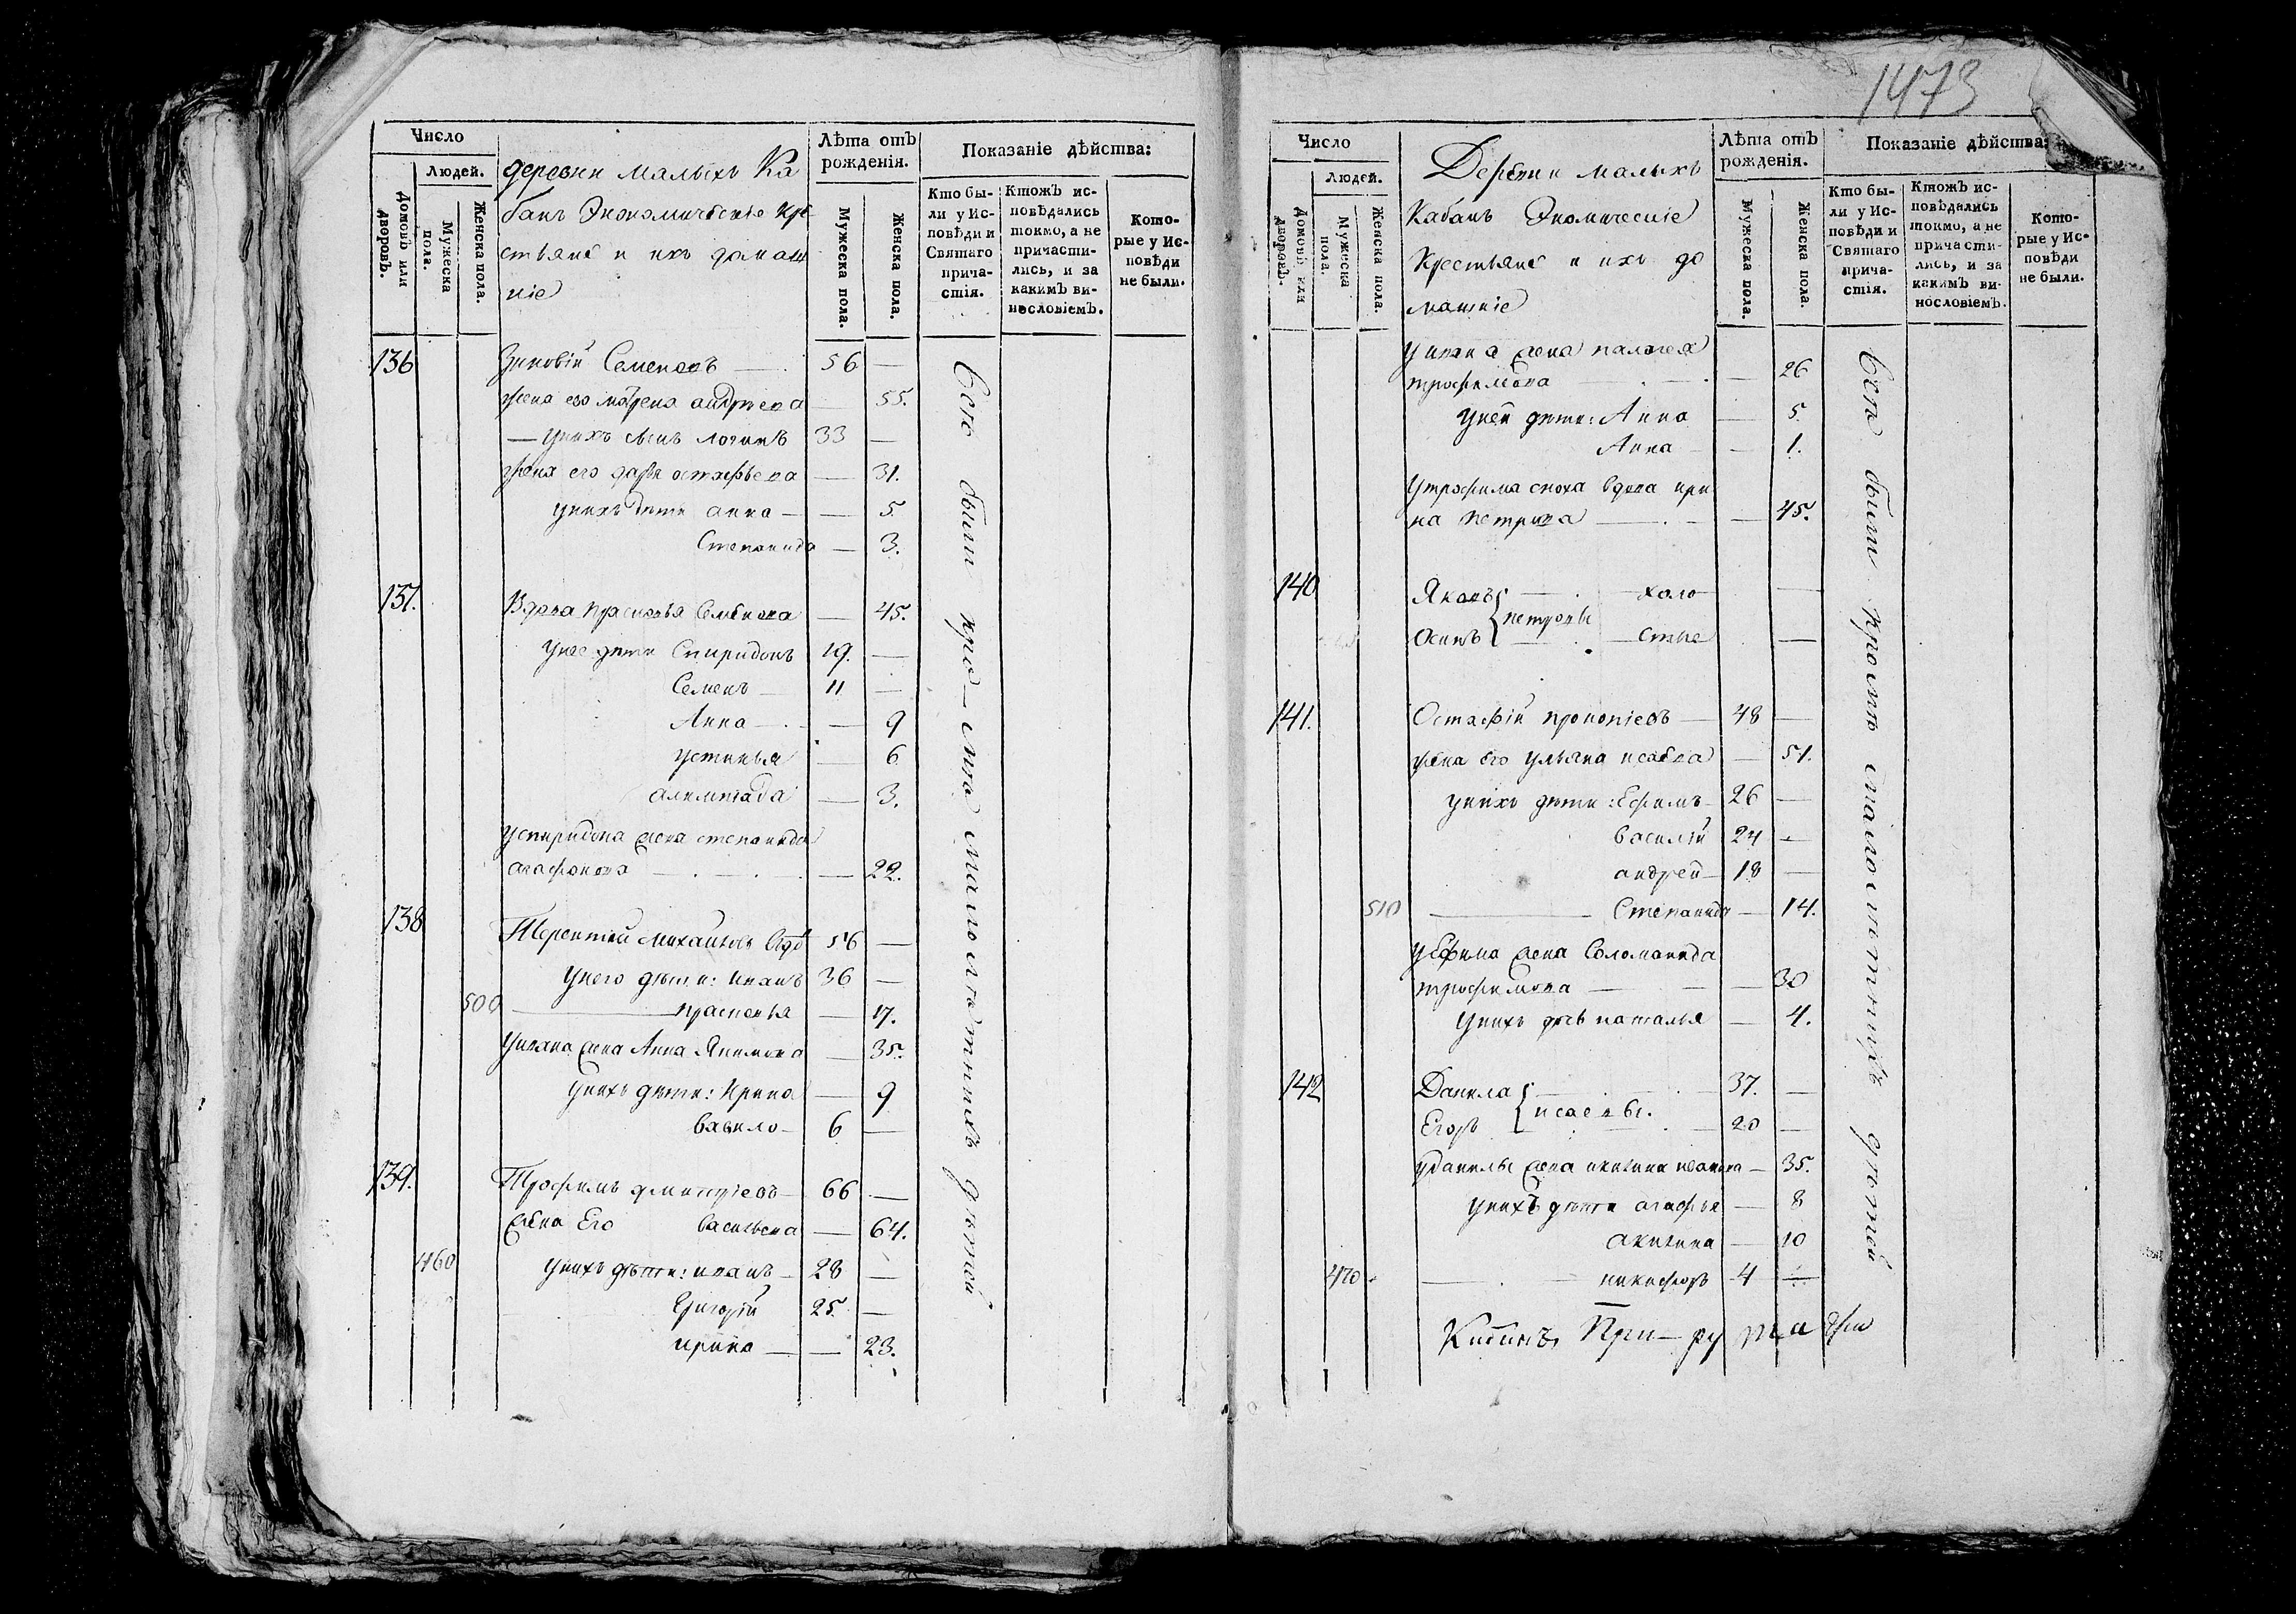 1473
Число
Людей.
Домовъ или дворовъ.
Мужеска пола.
Женска пола.
деревни малыхъ Ка
банъ Экономическіе кре
стьяне и ихъ домаш
ніе
Лѣта отъ рожденія.
Мужеска пола.
Женска пола.
Показаніе дѣйства:
Кто бы-
ли у Ис-
повѣди и
Святаго
прича-
стія.
Ктожъ ис-
повѣдались
токмо, а не
причасти-
лись, и за
какимъ ви-
нословіемъ.
Кото-
рые у Ис-
повѣди
не были.
136 Зиновій Семеновъ — 56 —
жена его матрена андреева — 55.
— унихъ сынъ логинъ 33 —
жена его дарья остафьева — 31.
унихъ дѣти анна — — 5
Степанида — 3.
137. Вдова прасковья Семенова — 45.
унее дѣти Спиридонъ 19. —
Семенъ — 11 —
Анна — — 9
устинья — 6
алимпіада — 3.
успиридона жена степанида
агафонова — — 22.
138 Терентей михайловъ вдовъ 56 —
унего дѣти: иванъ 36 —
500 — прасковья — 17.
уивана жена Анна Якимова — 35.
унихъ дѣти: Ирина — 9
вавило — 6 —
139. Трофимъ дмитріевъ — 66 —
жена Его васильева — 64.
460 унихъ дѣти: иванъ — 28 —
Григорій 25. —
ирина — — 23.
Всѣ были кро—мѣ малолѣтнихъ дѣтей
Число
Людей.
Домовъ или дворовъ.
Мужеска пола.
Женска пола.
Деревни малыхъ
Кабанъ Экомическіе
Крестьяне и ихъ до
машніе
Лѣта отъ рожденія.
Мужеска пола.
Женска пола.
Показаніе дѣйства:
Кто бы-
ли у Ис-
повѣди и
Святаго
прича-
стія.
Ктожъ ис-
повѣдались
токмо, а не
причасти-
лись, и за
какимъ ви-
нословіемъ.
Кото-
рые у Ис-
повѣди
не были.
уивана жена палагея
трофимова — — 26
уней дѣти: Анна — 5
Анна — — 1.
утрофима сноха вдова ири
на петрова — — 45.
140 Яковъ — холо —
петровы
Осипъ — стые —
141. Остафій прокопіевъ — 48 —
жена его ульяна исаева — 51.
унихъ дѣти: Ефимъ — 26 —
василій 24 —
андрей — 18 —
510 — Степанида — 14.
уЕфима жена Соломанида
трофимова — — 30
унихъ дочь наталья — 4.
142 Данила — 37. —
исаевы.
Егоръ — 20 —
уданилы жена акилина иванова — 35.
унихъ дѣти агафья — 8
акилина — 10
470 — никифоръ 4 —
Всѣ были кромѣ малолѣтнихъ дѣтей